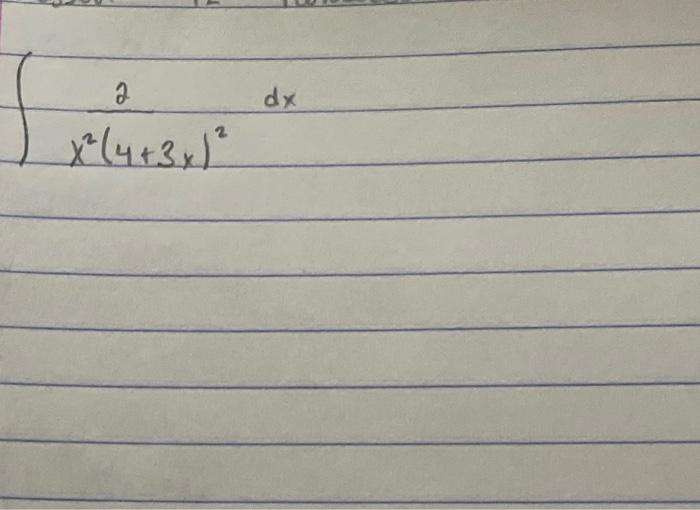 ∫ 2 / x²(4+3x)² dx